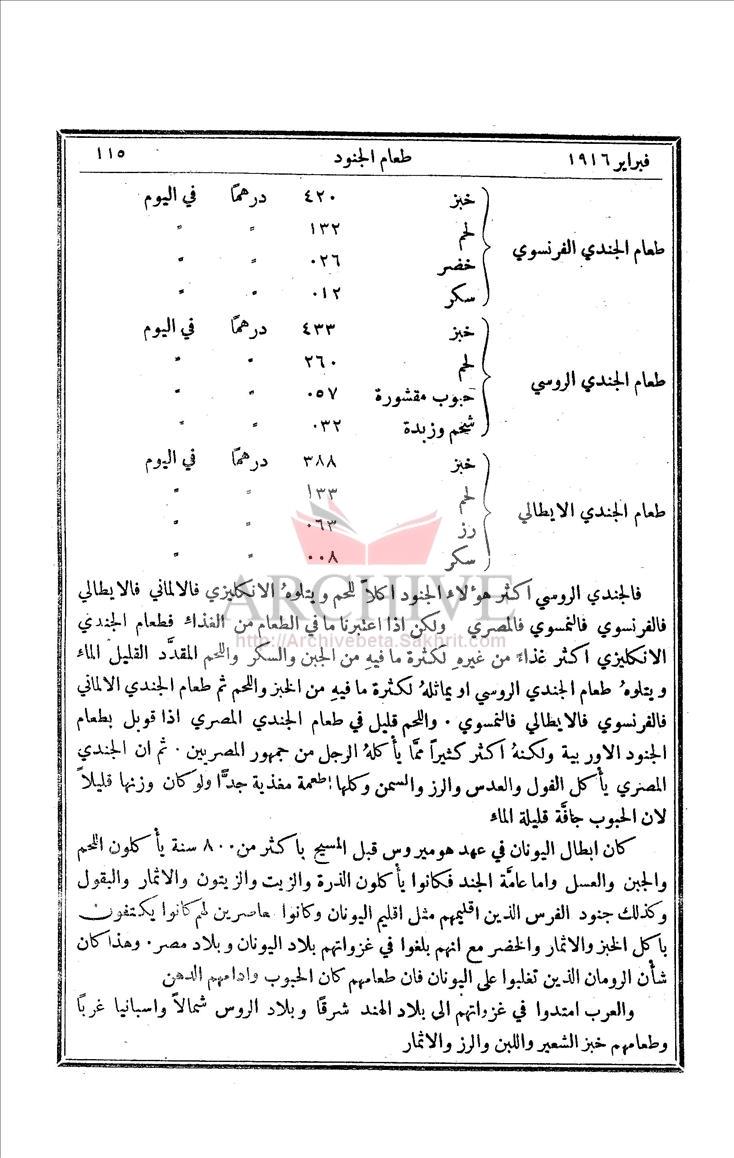 فبراير ١٩١٦ طعام الجنود ١١٥
طعام الجندي الفرنسوي
خبز ٤٢٠ درهمًا في اليوم
لحم ١٣٢ " "
خضر ٠٢٦ " "
سكر ٠١٢ " "
طعام الجندي الروسي
خبز ٤٣٣ درهمًا في اليوم
لحم ٢٦٠ " "
حبوب مقشورة ٠٥٧ " "
شحم وزبدة ٠٣٢ " "
طعام الجندي الايطالي
خبز ٣٨٨ درهمًا في اليوم
لحم ١٣٣ " "
رز ٠٦٣ " "
سكر ٠٠٨ " "
فالجندي الروسي اكثر هوٴلاء الجنود اكلاً للحم ويتلوهُ الانكليزي فالالماني فالايطالي
فالفرنسوي فالنمسوي فالمصري ولكن اذا اعتبرنا ما في الطعام من الغذاء فطعام الجندي
الانكليزي اكثر غذاءً من غيرهِ لكثرة ما فيهِ من الجبن والسكر واللحم المقدَّد القليل الماء
ويتلوهُ طعام الجندي الروسي او يماثلهُ لكثرة ما فيهِ من الخبز واللحم ثم طعام الجندي الالماني
فالفرنسوي فالايطالي فالنمسوي . واللحم قليل في طعام الجندي المصري اذا قوبل بطعام
الجنود الاوربية ولكنهُ اكثر كثيراً ممَّا يأكلهُ الرجل من جمهور المصربين . ثم ان الجندي
المصري يأكل الفول والعدس والرز والسمن وكلها اطعمة مغذية جدًّا ولو كان وزنها قليلاً
لان الحبوب جافَّة قليلة الماء
كان ابطال اليونان في عهد هوميروس قبل المسيح باكثر من ٨٠٠ سنة يأكلون اللحم
والجبن والعسل واما عامَّة الجند فكانوا يأكلون الذرة والزيت والزيتون والاثمار والبقول
وكذلك جنود الفرس الذين اقليمهم مثل اقليم اليونان وكانوا معاصرين لهم كانوا يكتفون
باكل الخبز والاثمار والخضر مع انهم بلغوا في غزواتهم بلاد اليونان وبلاد مصر. وهذا كان
شأن الرومان الذين تغلبوا على اليونان فان طعامهم كان الحبوب وادامهم الدهن
والعرب امتدوا في غزواتهم الى بلاد الهند شرقًا وبلاد الروس شمالاً واسبانيا غربًا
وطعامهم خبز الشعير واللبن والرز والاثمار
ARCHIVE
http://Archivebeta.Sakhrit.com